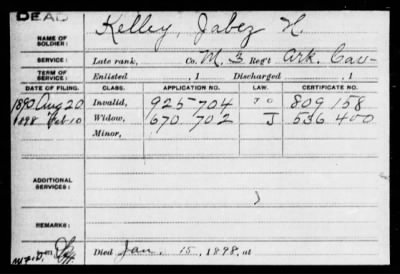 DEAD
NAME OF SOLDIER: Kelley, Jabez H.
SERVICE: Late rank, Co. M, 3 Reg't Ark. Cav-
TERM OF SERVICE: Enlisted , 1 Discharged , 1
DATE OF FILING. CLASS. APPLICATION NO. LAW. CERTIFICATE NO.
1890 Aug 20 Invalid, 925704 809158
1898 Feb 10 Widow, 670 702 J 536400
Minor,
ADDITIONAL SERVICES:
REMARKS:
Died Jan. 15, 1898, at